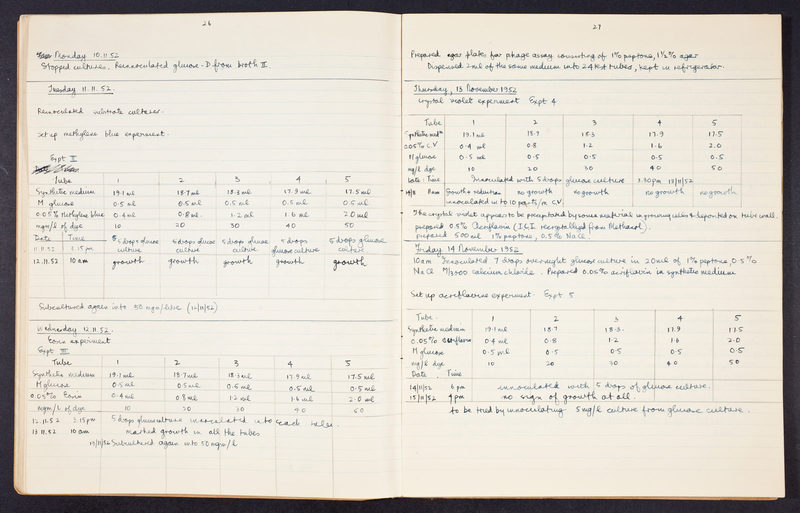 26
Monday 10.11.52
Stopped cultures. Reinnoculated glucose-D from broth II.
Tuesday 11.11.52.
Reinnoculated substrate cultures.
Set up methylene blue experiment.
Expt II
Tube 1 2 3 4 5
Synthetic medium 19.1ml 18.7ml 18.3ml 17.9ml 17.5ml
M glucose 0.5ml 0.5ml 0.5ml 0.5ml 0.5ml
0.05% Methylene blue 0.4ml 0.8ml. 1.2ml 1.6ml 2.0ml
mgm/l of dye 10 20 30 40 50
Date Time 5 drops glucose 5 drops glucose 5 drops glucose 5 drops 5 drops glucose
11.11.52 5.15pm culture culture culture glucose culture culture
12.11.52 10am growth growth growth growth growth
Subcultured again into 50 mgm/litre (12/11/52)
Wednesday 12.11.52.
experiment
Expt III
Tube 1 2 3 4 5
Synthetic medium 19.1ml 18.7ml 18.3ml 17.9ml 17.5ml
M glucose 0.5ml 0.5ml 0.5ml 0.5ml 0.5ml
0.05% 0.4ml 0.8ml 1.2ml 1.6ml 2.0ml
mgm/l of dye 10 20 30 40 50
12.11.52 5.15pm 5 drops glucose culture innoculated into each tube.
13.11.52 10am marked growth in all the tubes
13/11/52 Subcultured again into 50mgm/l
27
Prepared agar plates for phage assay consisting of 1% peptone, 1½% agar
Dispensed 2ml of the same medium into 24 test tubes, kept in refrigerator.
Thursday, 13 November 1952
Crystal violet experiment Expt 4
Tube 1 2 3 4 5
Synthetic medm 19.1ml 18.7 18.3 17.9 17.5
0.05% C.V 0.4ml 0.8 1.2 1.6 2.0
M glucose 0.5ml 0.5 0.5 0.5 0.5
mg/l dye 10 20 30 40 50
Date: Time Innoculated with 5 drops glucose culture 3.30pm 13/11/52
11am Growth & reduction no growth no growth no growth no growth
innoculated into 10 parts/m C.V.
The crystal violet appears to be precipitated by some material in growing cells & deposited on tube wall.
prepared 0.5% Acriflavin (I.C.I recrystallised from Methanol).
prepared 500ml 1% peptone, 0.5% NaCl
Friday 14 November 1952
10am Innoculated 7 drops overnight glucose culture in 20ml of 1% peptone, 0.5%
NaCl M/3000 calcium chloride. Prepared 0.05% acriflavin in synthetic medium
Set up acriflavine experiment Expt 5
Tube. 1 2 3 4 5
Synthetic medium 19.1ml 18.7 18.3. 17.9 17.5
0.05% acriflavin 0.4ml 0.8 1.2 1.6 2.0
M glucose 0.5ml 0.5 0.5 0.5 0.5
mg/l dye 10 20 30 40 50
Date Time
14/11/52 6pm innoculated with 5 drops of glucose culture.
15/11/52 4pm no sign of growth at all.
to be tried by innoculating 5mg/l culture from glucose culture.